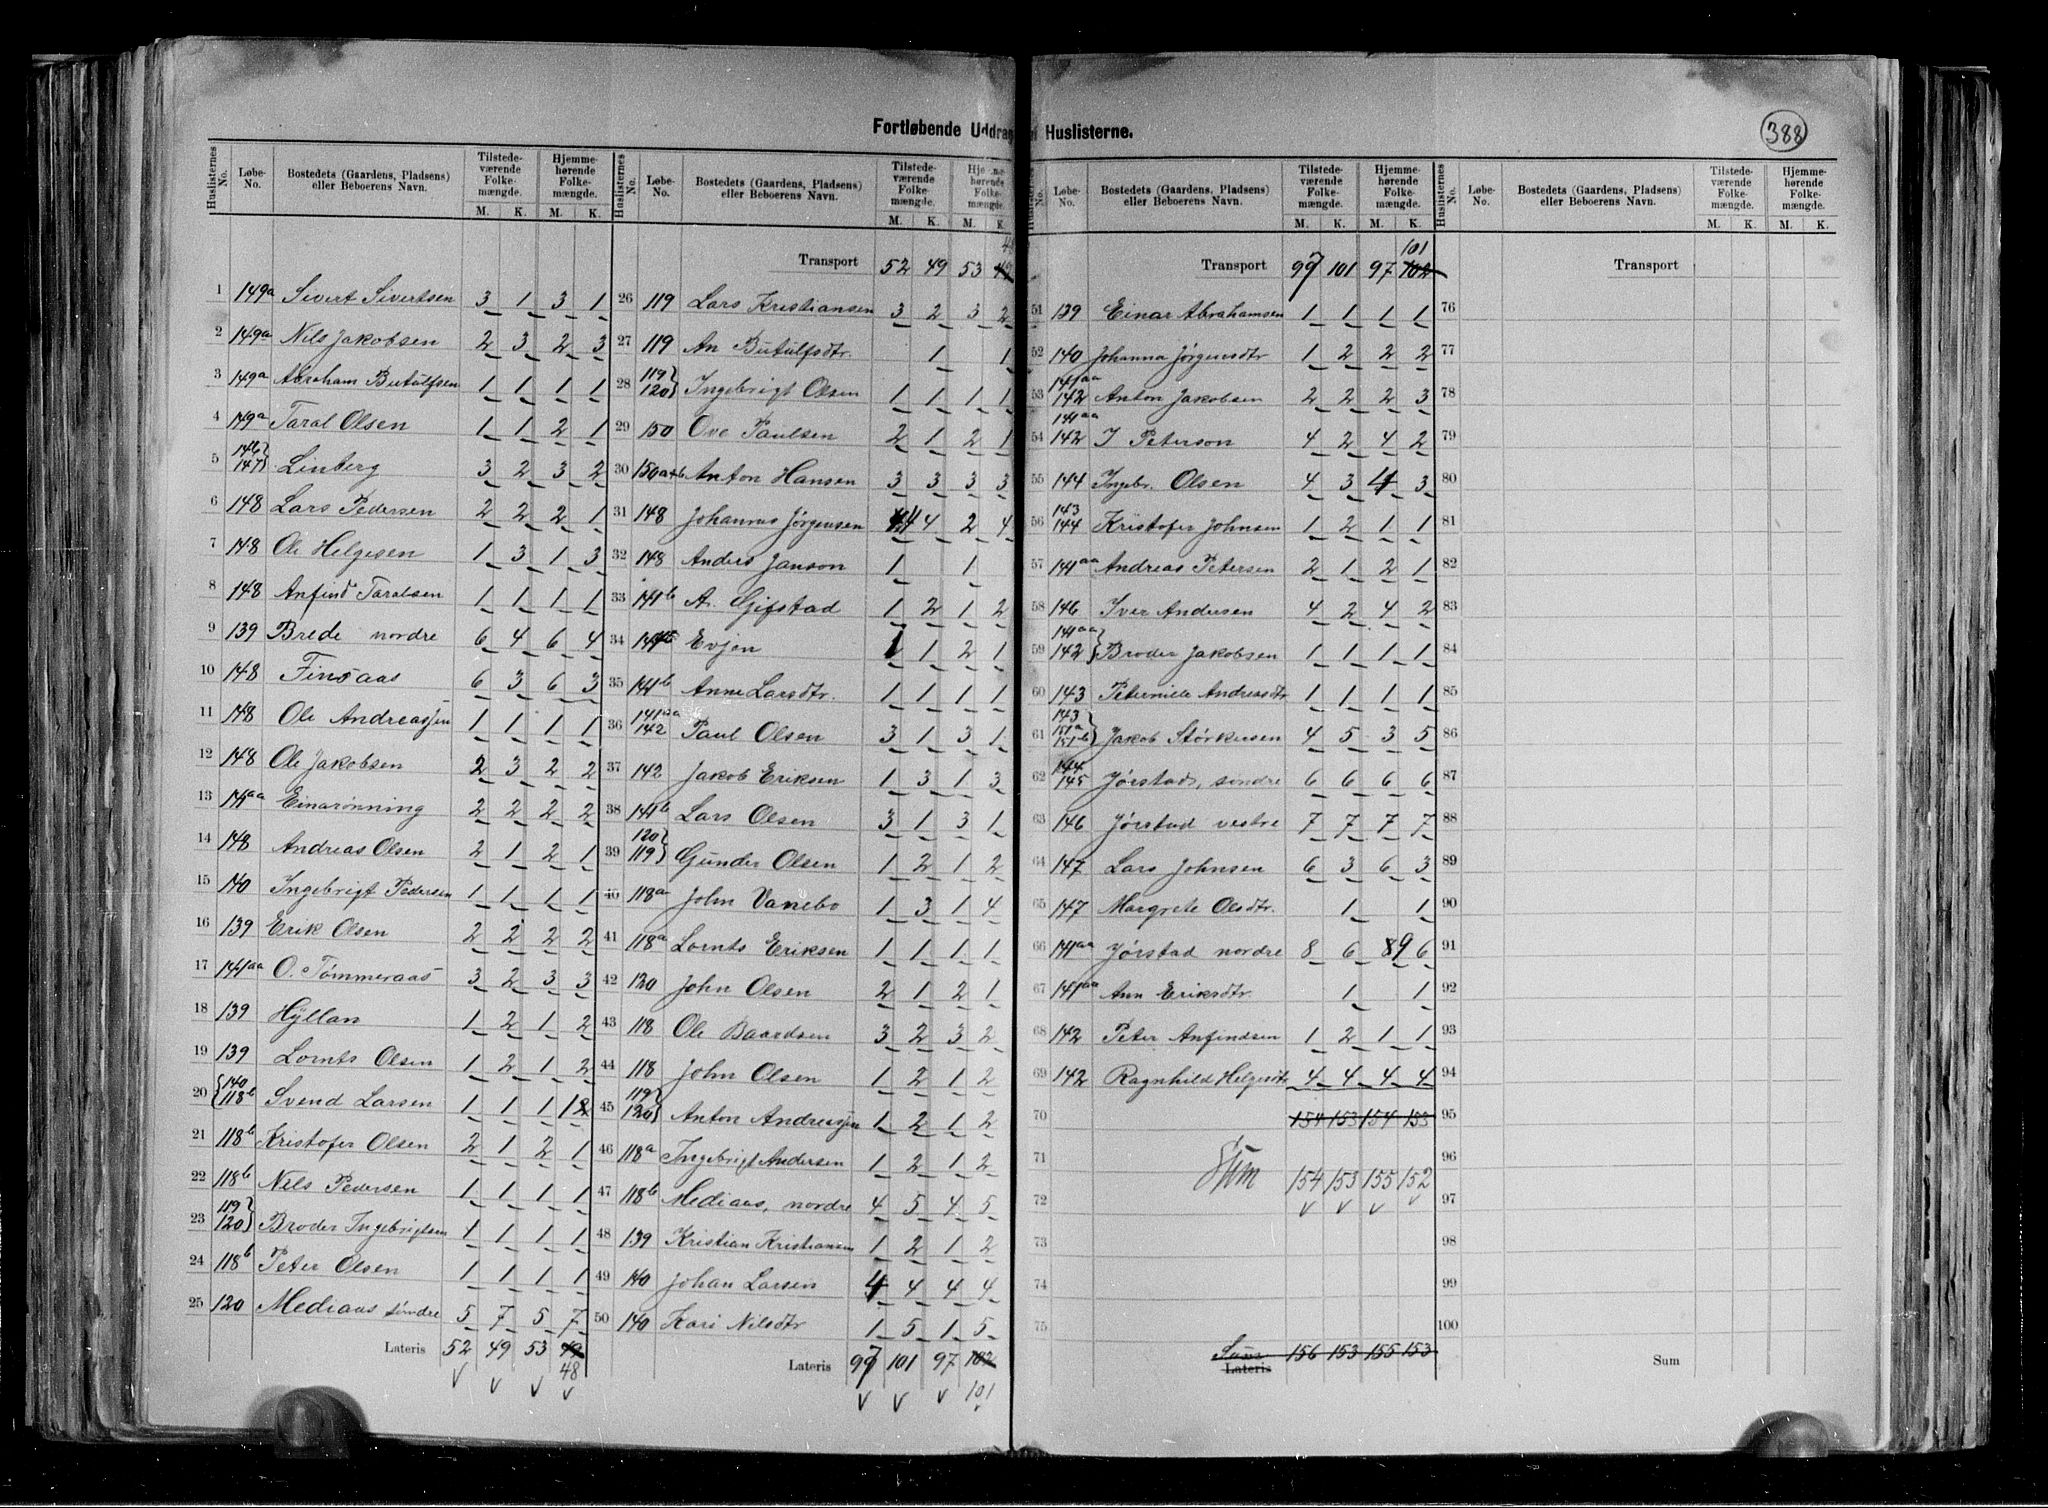 388
Fortløbende Uddrag af Huslisterne.
Huslisternes No. Løbe-No. Bostedets (Gaardens, Pladsens) eller Beboerens Navn. Tilstedeværende Folkemængde. M. K. Hjemmehørende Folkemængde. M. K.
1 149a Sivert Sivertsen 3 1 3 1
2 149a Nils Jakobsen 2 3 2 3
3 149a Abraham Butulfsen 1 1 1 1
4 149a Taral Olsen 1 1 2 1
5 146 147 Linberg 3 2 3 2
6 148 Lars Pedersen 2 2 2 1
7 148 Ole Helgesen 1 3 1 3
8 148 Anfind Taralsen 1 1 1 1
9 139 Brede nordre 6 4 6 4
10 148 Finsaas 6 3 6 3
11 148 Ole Andreassen 1 1 1 1
12 148 Ole Jakobsen 2 3 2 2
13 141aa Einarønning 2 2 2 2
14 148 Andreas Olsen 2 1 2 1
15 140 Ingebrigt Pedersen 1 1 1 1
16 139 Erik Olsen 2 2 2 2
17 141aa O. Tømmeraas 3 2 3 3
18 139 Hÿllan 1 2 1 2
19 139 Lornts Olsen 1 2 1 2
20 140 118b Svend Larsen 1 1 1 1
21 118b Kristofer Olsen 2 1 2 1
22 118b Nils Pedersen 1 1 1 1
23 119 120 Broder Ingebrigtsen 1 1 1 1
24 118b Peter Olsen 1 1 1 1
25 120 Mediaas søndre 5 7 5 7
Lateris 52 49 53 49
48
Huslisternes No. Løbe-No. Bostedets (Gaardens, Pladsens) eller Beboerens Navn. Tilstedeværende Folkemængde. M. K. Hjemmehørende Folkemængde. M. K.
Transport 52 49 53 48
26 119 Lars Kristiansen 3 2 3 2
27 119 An Butulfsdtr. 1 1
28 119 120 Ingebrigt Olsen 1 1 1 1
29 150 Ove Paulsen 2 1 2 1
30 150a+b Anton Hansen 3 3 3 3
31 148 Johannes Jørgensen 4 4 2 4
32 148 Anders Janson 1 1
33 141b A. Gifstad 1 2 1 2
34 141b Evjen 1 1 2 1
35 141b Anne Larsdtr. 1 1 1 1
36 141aa 142 Paul Olsen 3 1 3 1
37 142 Jakob Eriksen 1 3 1 3
38 141b Lars Olsen 3 1 3 1
39 120 119 Gunder Olsen 1 2 1 2
40 118a John Vanebo 1 3 1 4
41 118a Lornts Eriksen 1 1 1 1
42 120 John Olsen 2 1 2 1
43 118 Ole Baardsen 3 2 3 2
44 118 John Olsen 1 2 1 2
45 119 120 Anton Andreassen 1 2 1 2
46 118a Ingebrigt Andersen 1 2 1 2
47 118b Mediaas, nordre 4 5 4 5
48 139 Kristian Kristiansen 1 2 1 2
49 140 Johan Larsen 4 4 4 4
50 140 Kari Nilsdtr 1 5 1 5
Lateris 97 101 97 102
101
Huslisternes No. Løbe-No. Bostedets (Gaardens, Pladsens) eller Beboerens Navn. Tilstedeværende Folkemængde. M. K. Hjemmehørende Folkemængde. M. K.
101
Transport 97 101 97 102
51 139 Einar Abrahamsen 1 1 1 1
52 140 Johanna Jørgensdtr 1 2 2 2
53 141aa 142 Anton Jakobsen 2 2 2 3
54 141aa 142 I Peterson 4 2 4 2
55 144 Ingebr. Olsen 4 3 4 3
56 143 144 Kristofer Johnsen 1 2 1 1
57 141aa Andreas Petersen 2 1 2 1
58 146 Iver Andersen 4 2 4 2
59 141aa 142 Broder Jakobsen 1 1 1 1
60 143 Peternille Andreasdtr 1 1 1 1
61 143 151a 151b Jakob Størkersen 4 5 3 5
62 144 145 Jørstad, søndre 6 6 6 6
63 146 Jørstad vestre 7 7 7 7
64 147 Lars Johnsen 6 3 6 3
65 147 Margrete Olsdtr. 1 1
66 141aa Jørstad nordre 8 6 8 9 6
67 141aa Ann Eriksdtr. 1 1
68 142 Peter Anfindsen 1 2 1 1
69 142 Ragnhild Helgesdtr 4 4 4 4
70 154 153 154 153
71 Sum 154 153 155 152
72
73
74
75
Sum Lateris 156 153 155 153
Huslisternes No. Løbe-No. Bostedets (Gaardens, Pladsens) eller Beboerens Navn. Tilstedeværende Folkemængde. M. K. Hjemmehørende Folkemængde. M. K.
Transport
76
77
78
79
80
81
82
83
84
85
86
87
88
89
90
91
92
93
94
95
96
97
98
99
100
Sum